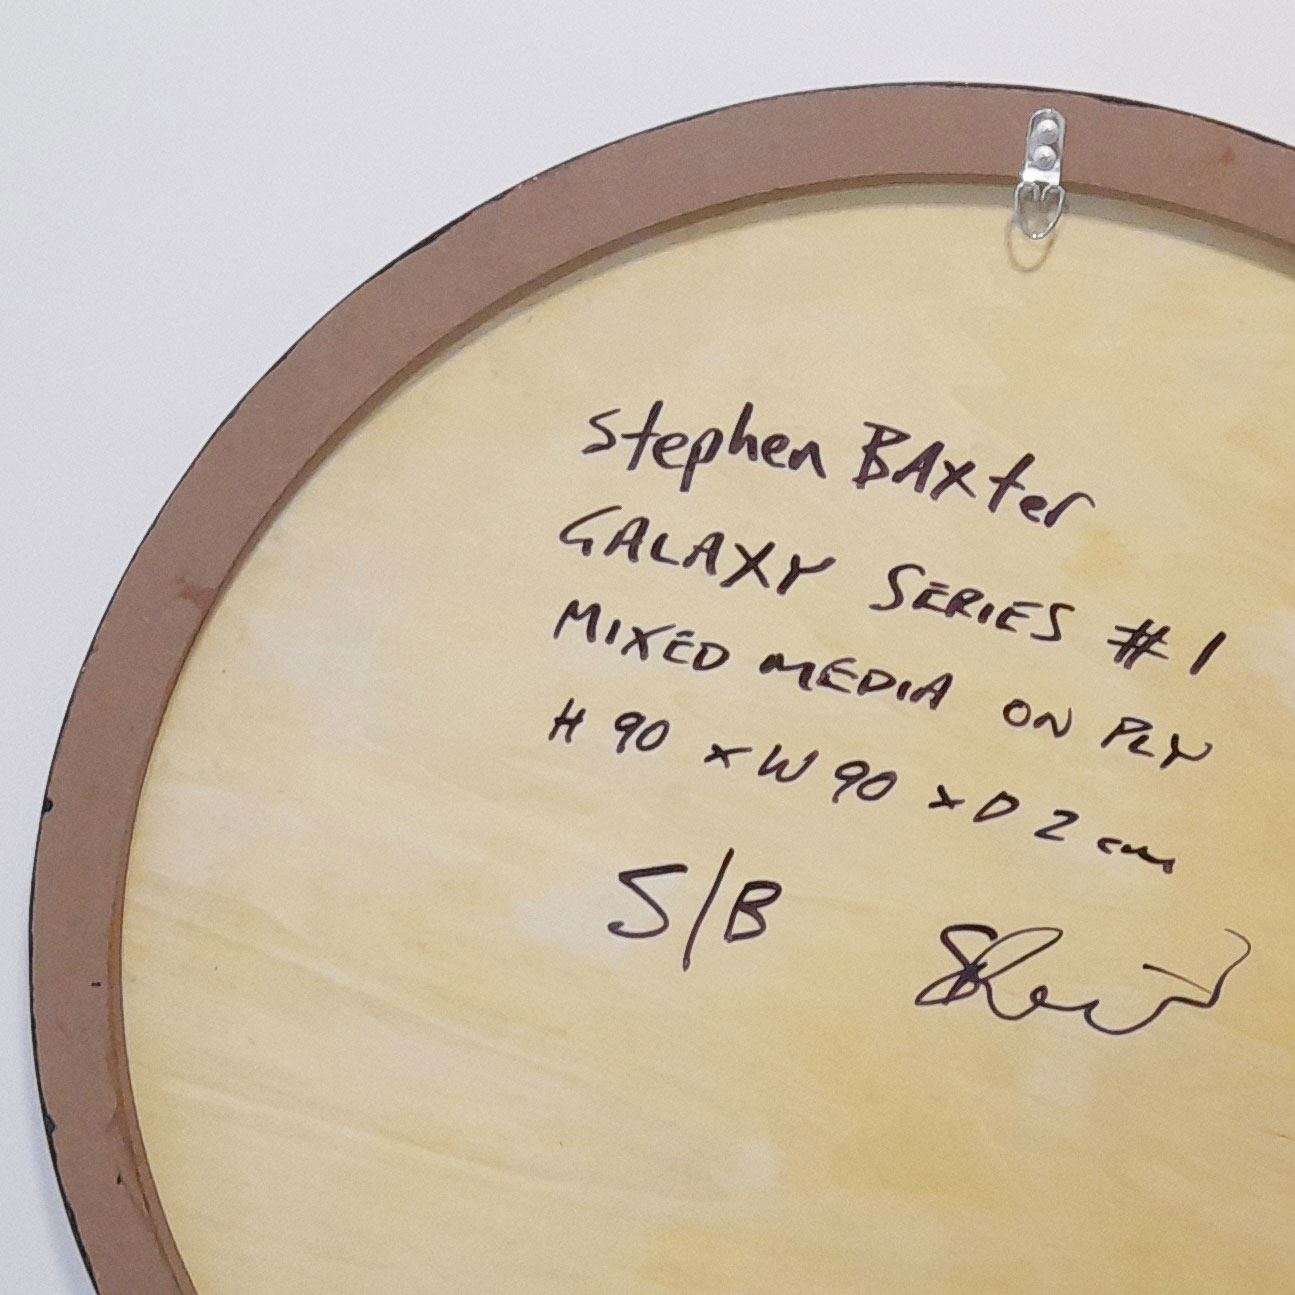 Stephen BAxter
GALAXY SERIES #1
MIXED MEDIA ON PLY
H 90 x W 90 x D 2 cm
S/B